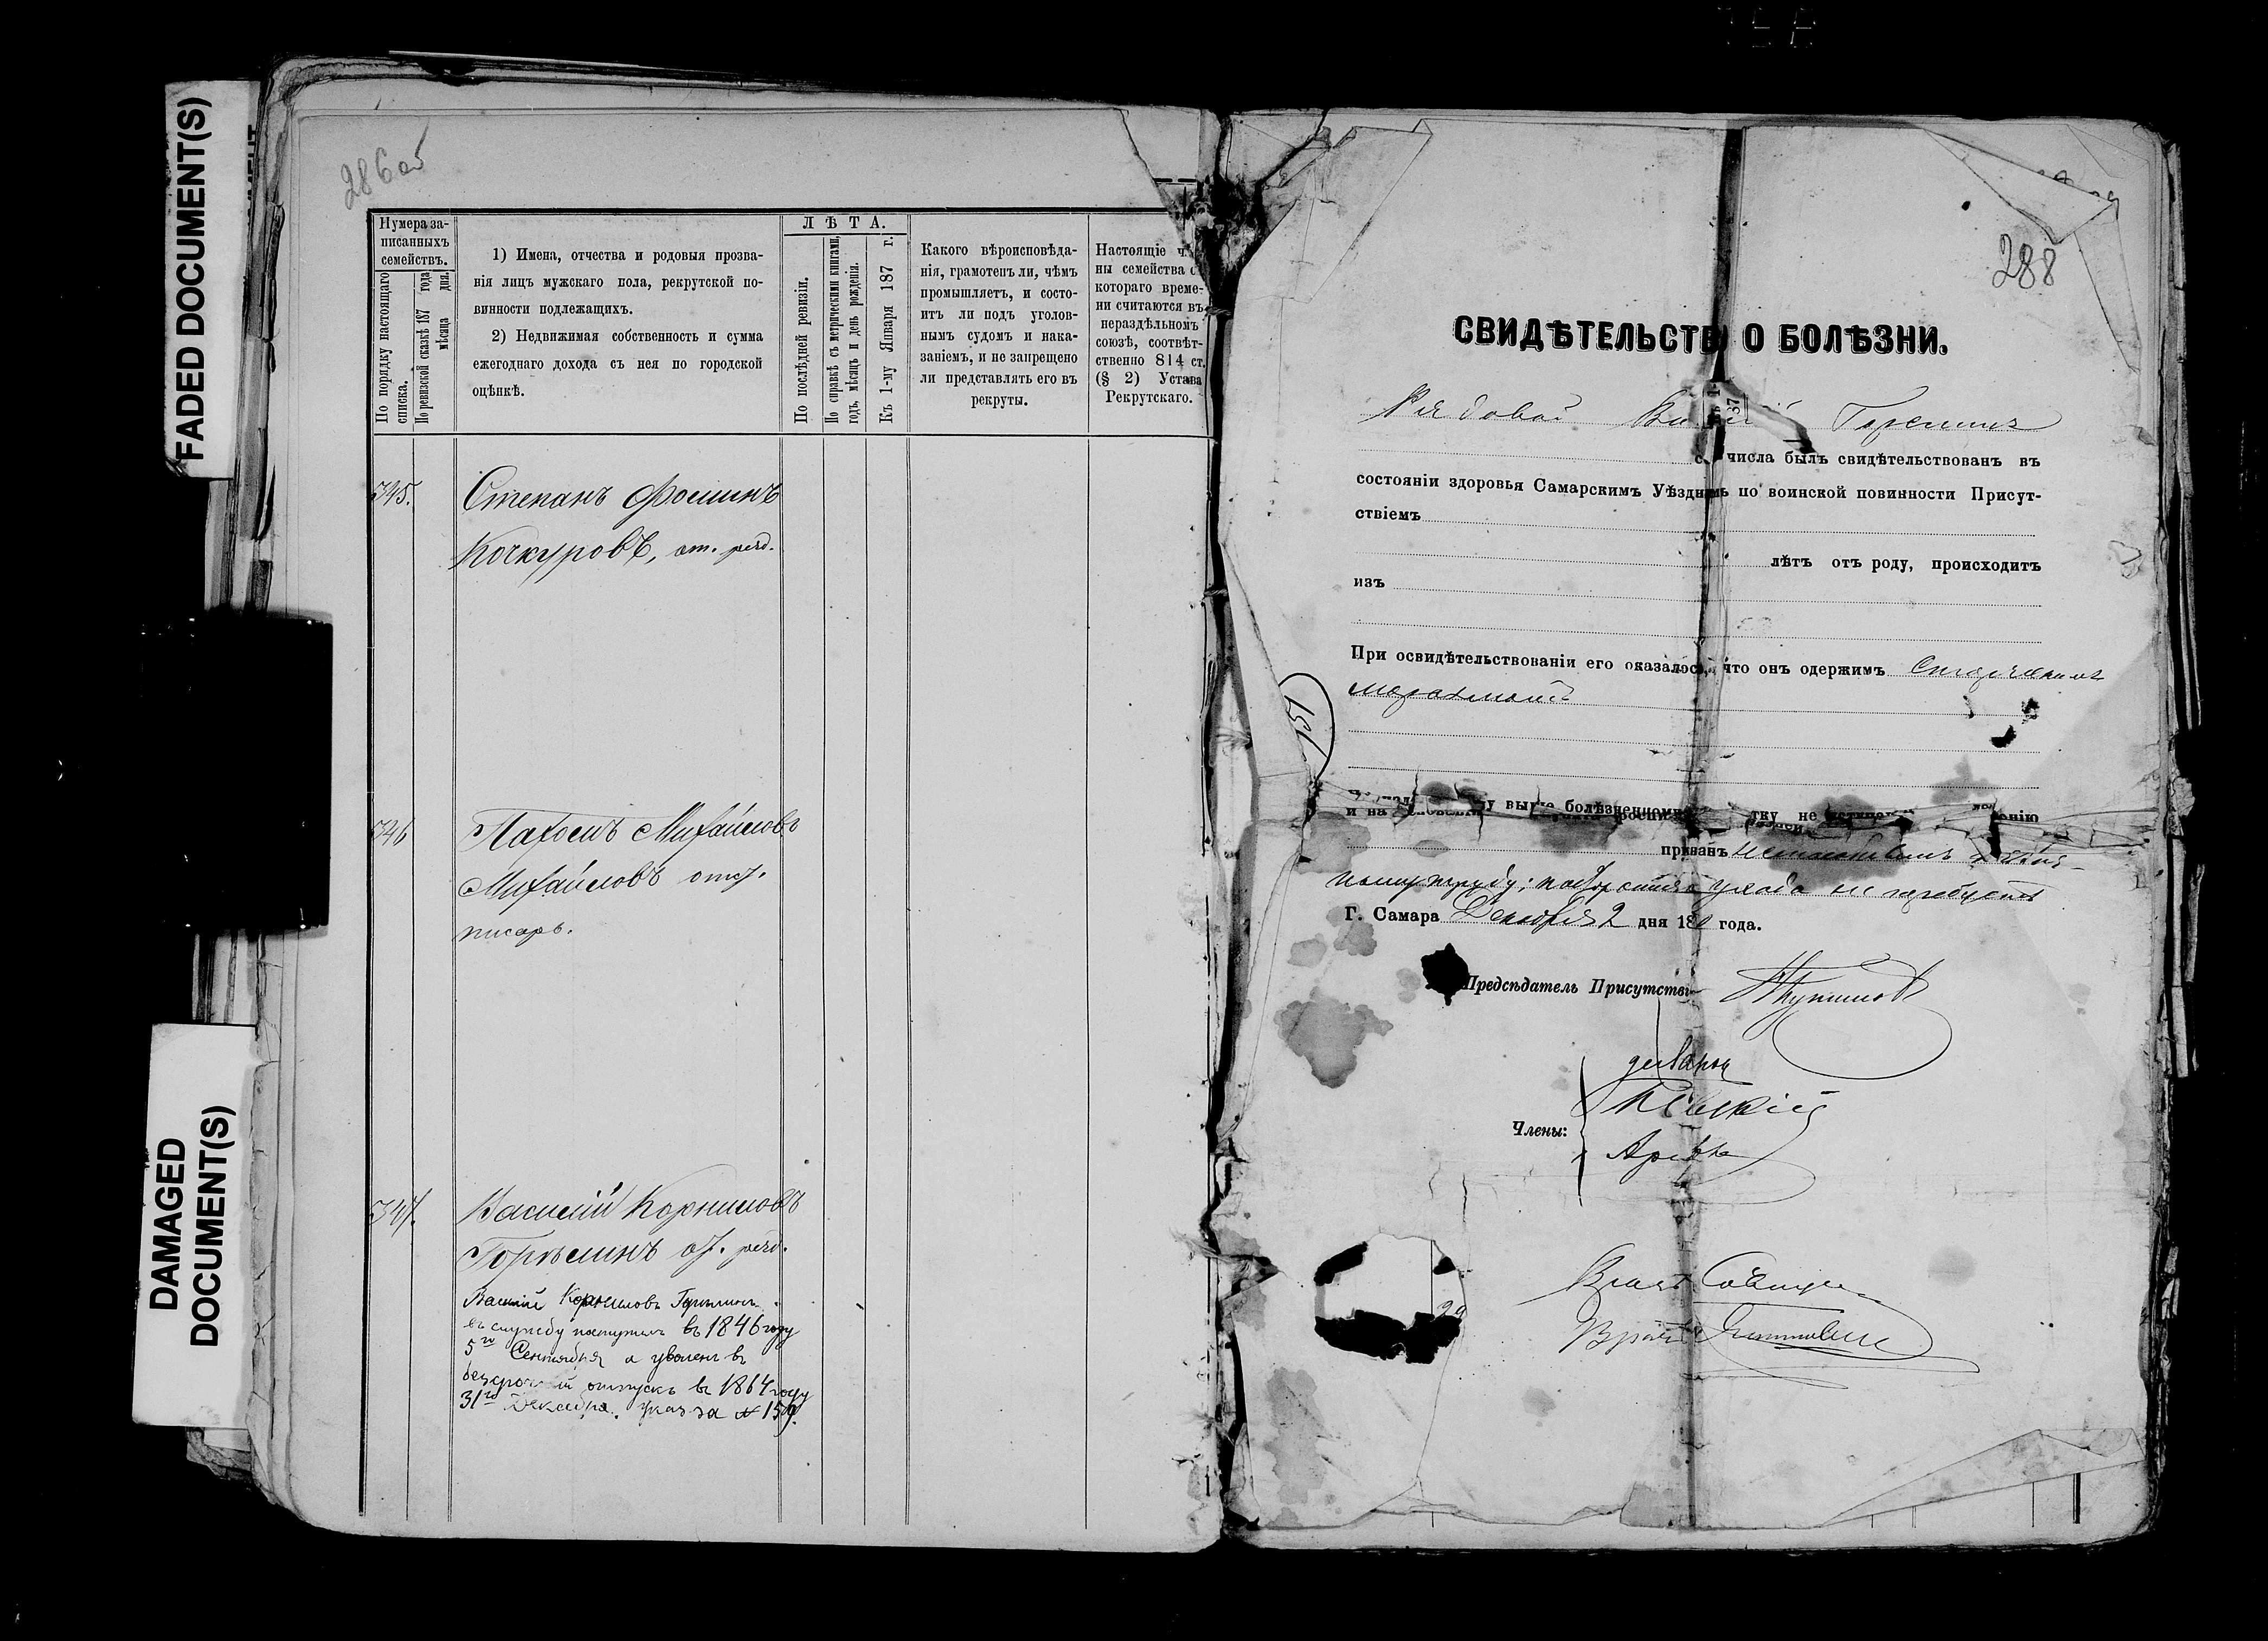 FADED DOCUMENT(S)
DAMAGED
DOCUMENT(S)
286об
Нумера за-
писанныхъ
семействъ.
По порядку настоящаго
списка.
По ревизской сказкѣ 187 года
мѣсяца дня.
1) Имена, отчества и родовыя прозва-
нія лицъ мужскаго пола, рекрутской по-
винности подлежащихъ.
2) Недвижимая собственность и сумма
ежегоднаго дохода съ нея по городской
оцѣнкѣ.
ЛѢТА.
По послѣдней ревизіи.
По справкѣ съ метрическими книгами,
годъ, мѣсяцъ и день рожденія.
Къ 1-му Января 187 г.
Какого вѣроисповѣда-
нія, грамотенъ ли, чѣмъ
промышляетъ, и состо-
итъ ли подъ уголов-
нымъ судомъ и нака-
заніемъ, и не запрещено
ли представлять его въ
рекруты.
Настоящіе
ны семейства с
котораго време-
ни считаются въ
нераздѣльномъ
союзѣ, соотвѣт-
ственно 814 ст.
(§ 2) Устава
Рекрутскаго.
345.
Степанъ Фоминъ
Кочкуровъ, от. ряд.
346
Пахомъ Михайловъ
Михайловъ отст.
писарь.
347.
Василій Корниловъ
Горѣлинъ от. ряд.
Василій Корниловъ Горѣлинъ
въ службу поступилъ въ 1846 году
5го Сентября а уволенъ въ
отпускъ въ 1864 году
31го Декабря. указ за № 159.
288
СВИДѢТЕЛЬСТВ О БОЛѢЗНИ.
Рядовой Горелинъ
числа былъ свидѣтельствованъ въ
состояніи здоровья Самарскимъ Уѣзднымъ по воинской повинности Присут-
ствіемъ
лѣтъ отъ роду, происходитъ
изъ
При освидѣтельствованіи его оказалось, что онъ одержимъ старческимъ
маразмомъ
151
у выше болѣзненному тку не
и на
призванъ
труду; посторонняго ухода не требуетъ
Г. Самара Декабря 2 дня 18 года.
Предсѣдатель Присутствія
Члены:
Врачъ